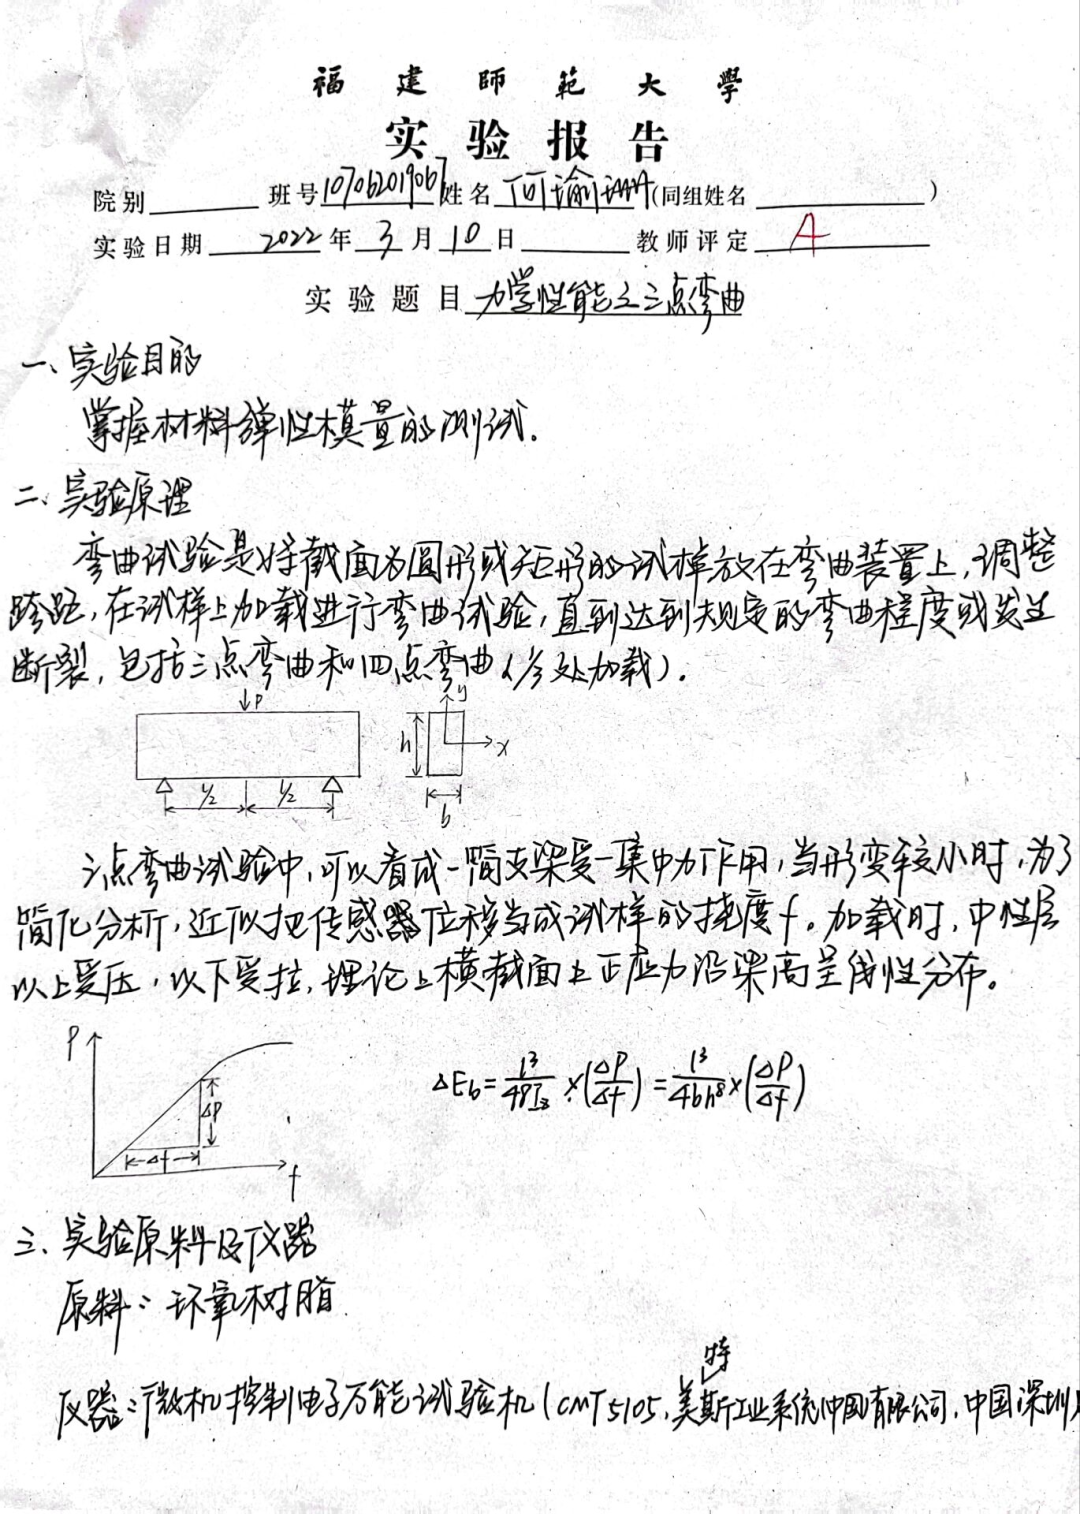 福建師範大學
实验报告
院别 班号 10706201906 姓名 何瑜琳 (同组姓名 )
实验日期 2022 年 3 月 10 日 教师评定 A
实验题目 力学性能之三点弯曲
一、实验目的
掌握材料弹性模量的测试.
二、实验原理
弯曲试验是将截面为圆形或矩形的试样放在弯曲装置上,调整
跨距,在试样上加载进行弯曲试验,直到达到规定的弯曲程度或发生
断裂,包括三点弯曲和四点弯曲(⅓处加载).
↓P y
h x
½ ½
b
三点弯曲试验中,可以看成一简支梁受一集中力作用,当形变较小时,为了
简化分析,近似把传感器位移当成试样的挠度f。加载时,中性层
以上受压,以下受拉,理论上横截面上正应力沿梁高呈线性分布。
P
ΔEb = l³/48Iz × (ΔP/Δf) = l³/4bh³ × (ΔP/Δf)
ΔP
Δf
f
三、实验原料及仪器
原料:环氧树脂
特
仪器:微机控制电子万能试验机(CMT5105,美斯工业系统(中国)有限公司,中国深圳